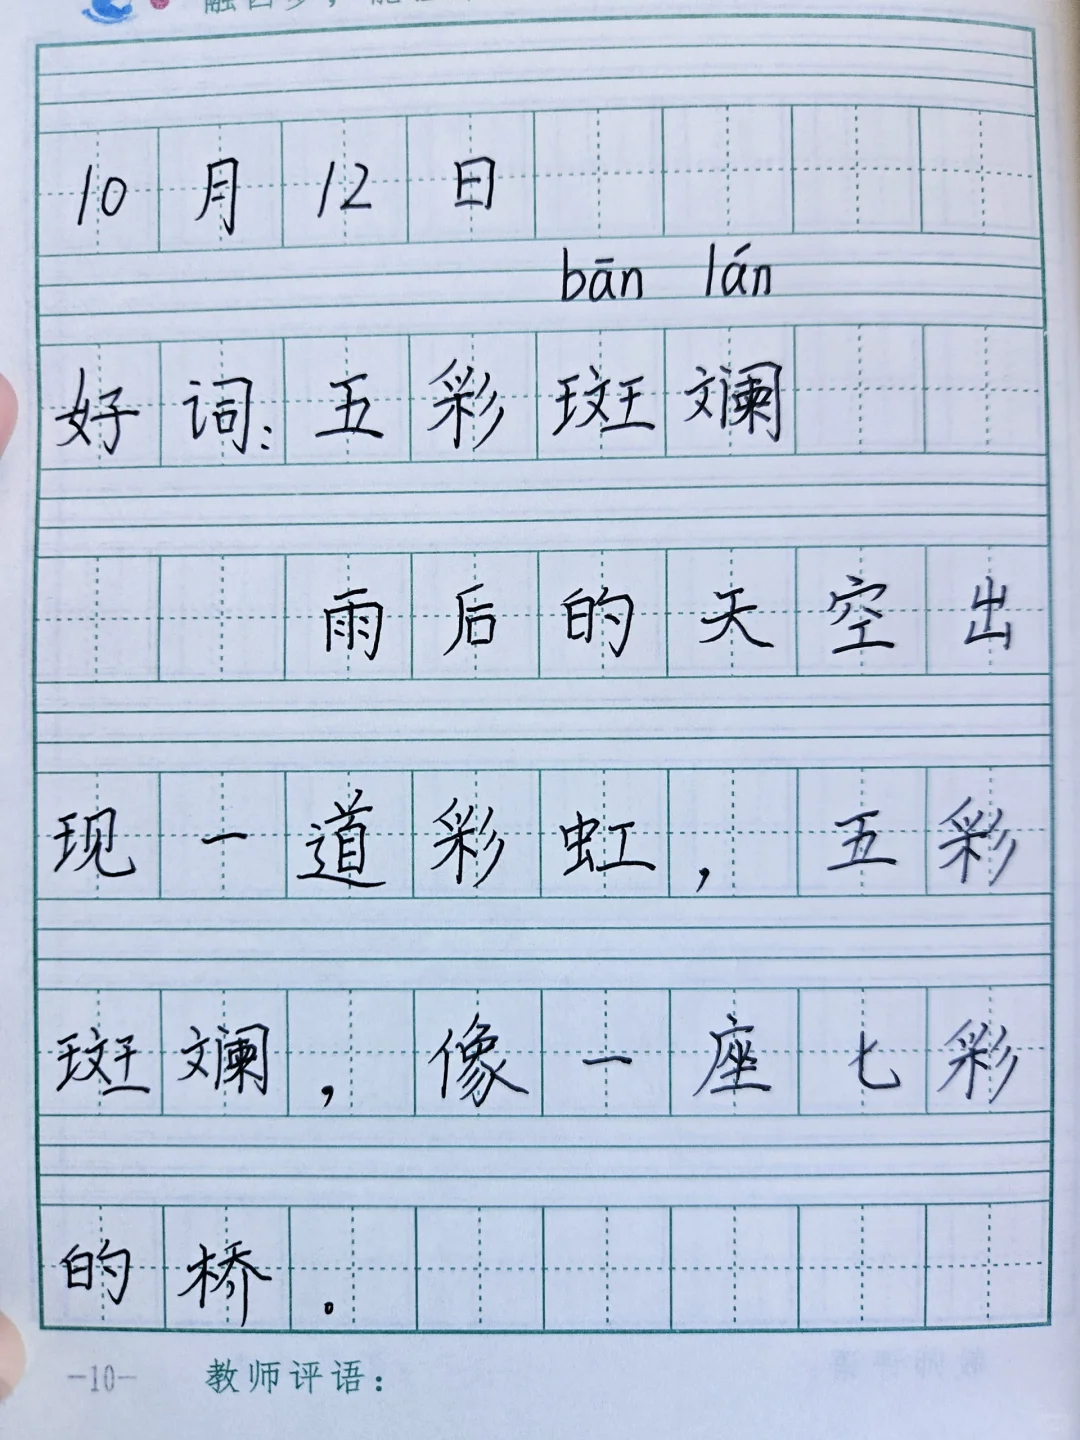 10月12日
bān lán
好词:五彩斑斓
雨后的天空出
现一道彩虹,五彩
斑斓,像一座七彩
的桥。
-10- 教师评语: